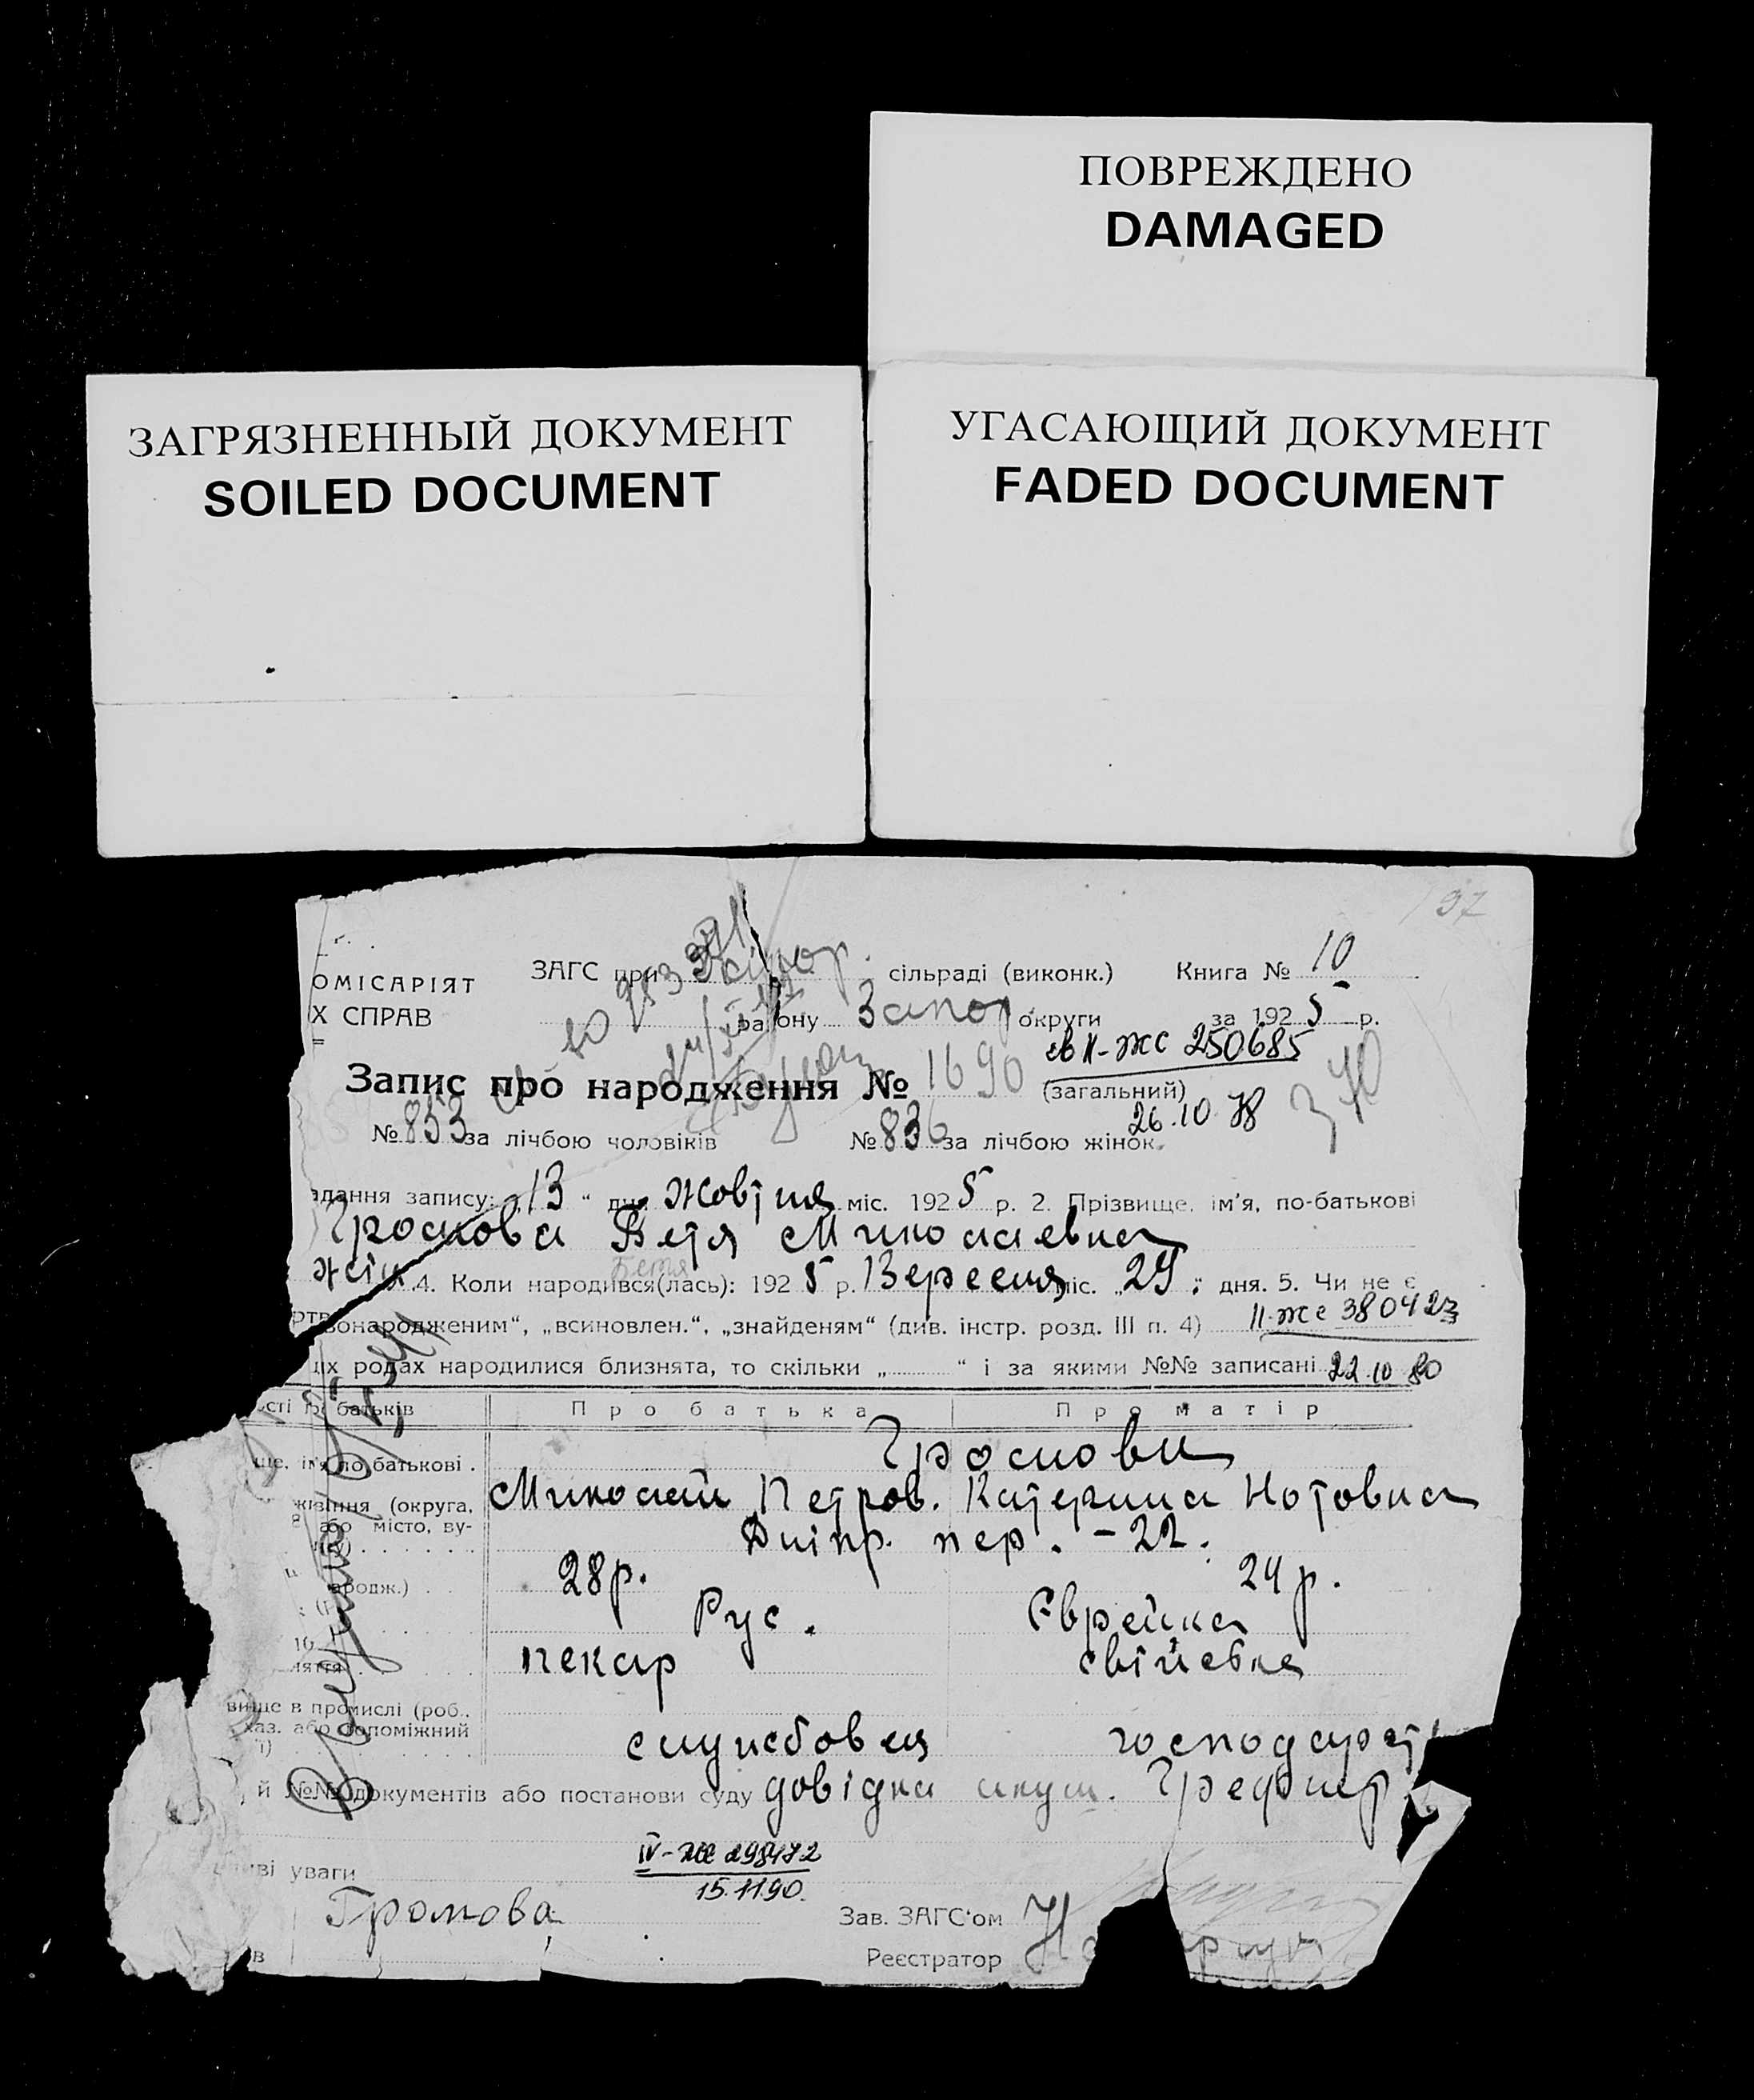 ПОВРЕЖДЕНО
DAMAGED
ЗАГРЯЗНЕННЫЙ ДОКУМЕНТ
SOILED DOCUMENT
УГАСАЮЩИЙ ДОКУМЕНТ
FADED DOCUMENT
197
ОМІСАРІЯТ
Х СПРАВ
ЗАГС при сільраді (виконк.) Книга № 10
району Запор округи за 1925 р.
св II-ЖС 250685
Запис про народження № 1690 (загальний)
26.10.78
№ 853 за лічбою чоловіків № 836 за лічбою жінок.
адання запису: „13“ дня Жовтня міс. 1925 р. 2. Прізвище, ім'я, по-батькові
Громова Бетя Миколаевна
Бетя
жін 4. Коли народився(лась): 1925 р. Вересня міс. „29“ дня. 5. Чи не є
ртвонародженим“, „всиновлен.“, „знайденям“ (див. інстр. розд. III п. 4) II-ЖС 380423
их родах народилися близнята, то скільки „ “ і за якими №№ записані 22.10 80
сті про батьків Про батька Про матір
ще, ім'я по-батькові . Громови
Миколай Петров. Катерина Нотовна
живіння (округа,
або місто, ву-
Дніпр. пер. - 22.
ародж.) . . 28 р. 24 р.
Рус. Єврейка
пекар свійська
вище в промислі (роб.,
каз. або допоміжний
службовец господарст
й №№ документів або постанови суду довідка акуш.
IV-ЖС 298472
15.11 90.
ві уваги
Громова
Зав. ЗАГС'ом
Реєстратор